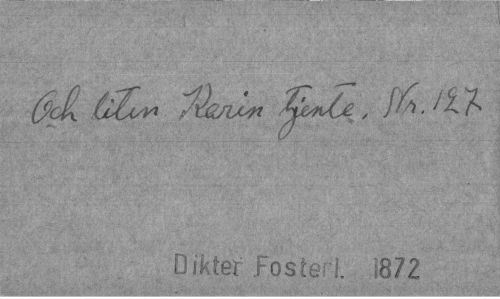 Och liten Karin tjente. Nr. 127
Dikter Fosterl. 1872